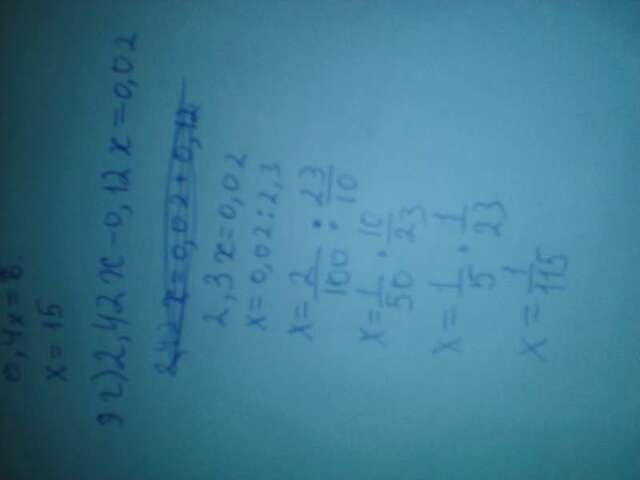 0,4x=6
x=15
92)2,42x-0,12x=0,02
2,42x=0,02+0,12
2,3x=0,02
x=0,02:2,3
x=2/100:23/10
x=1/50·10/23
x=1/5·1/23
x=1/115